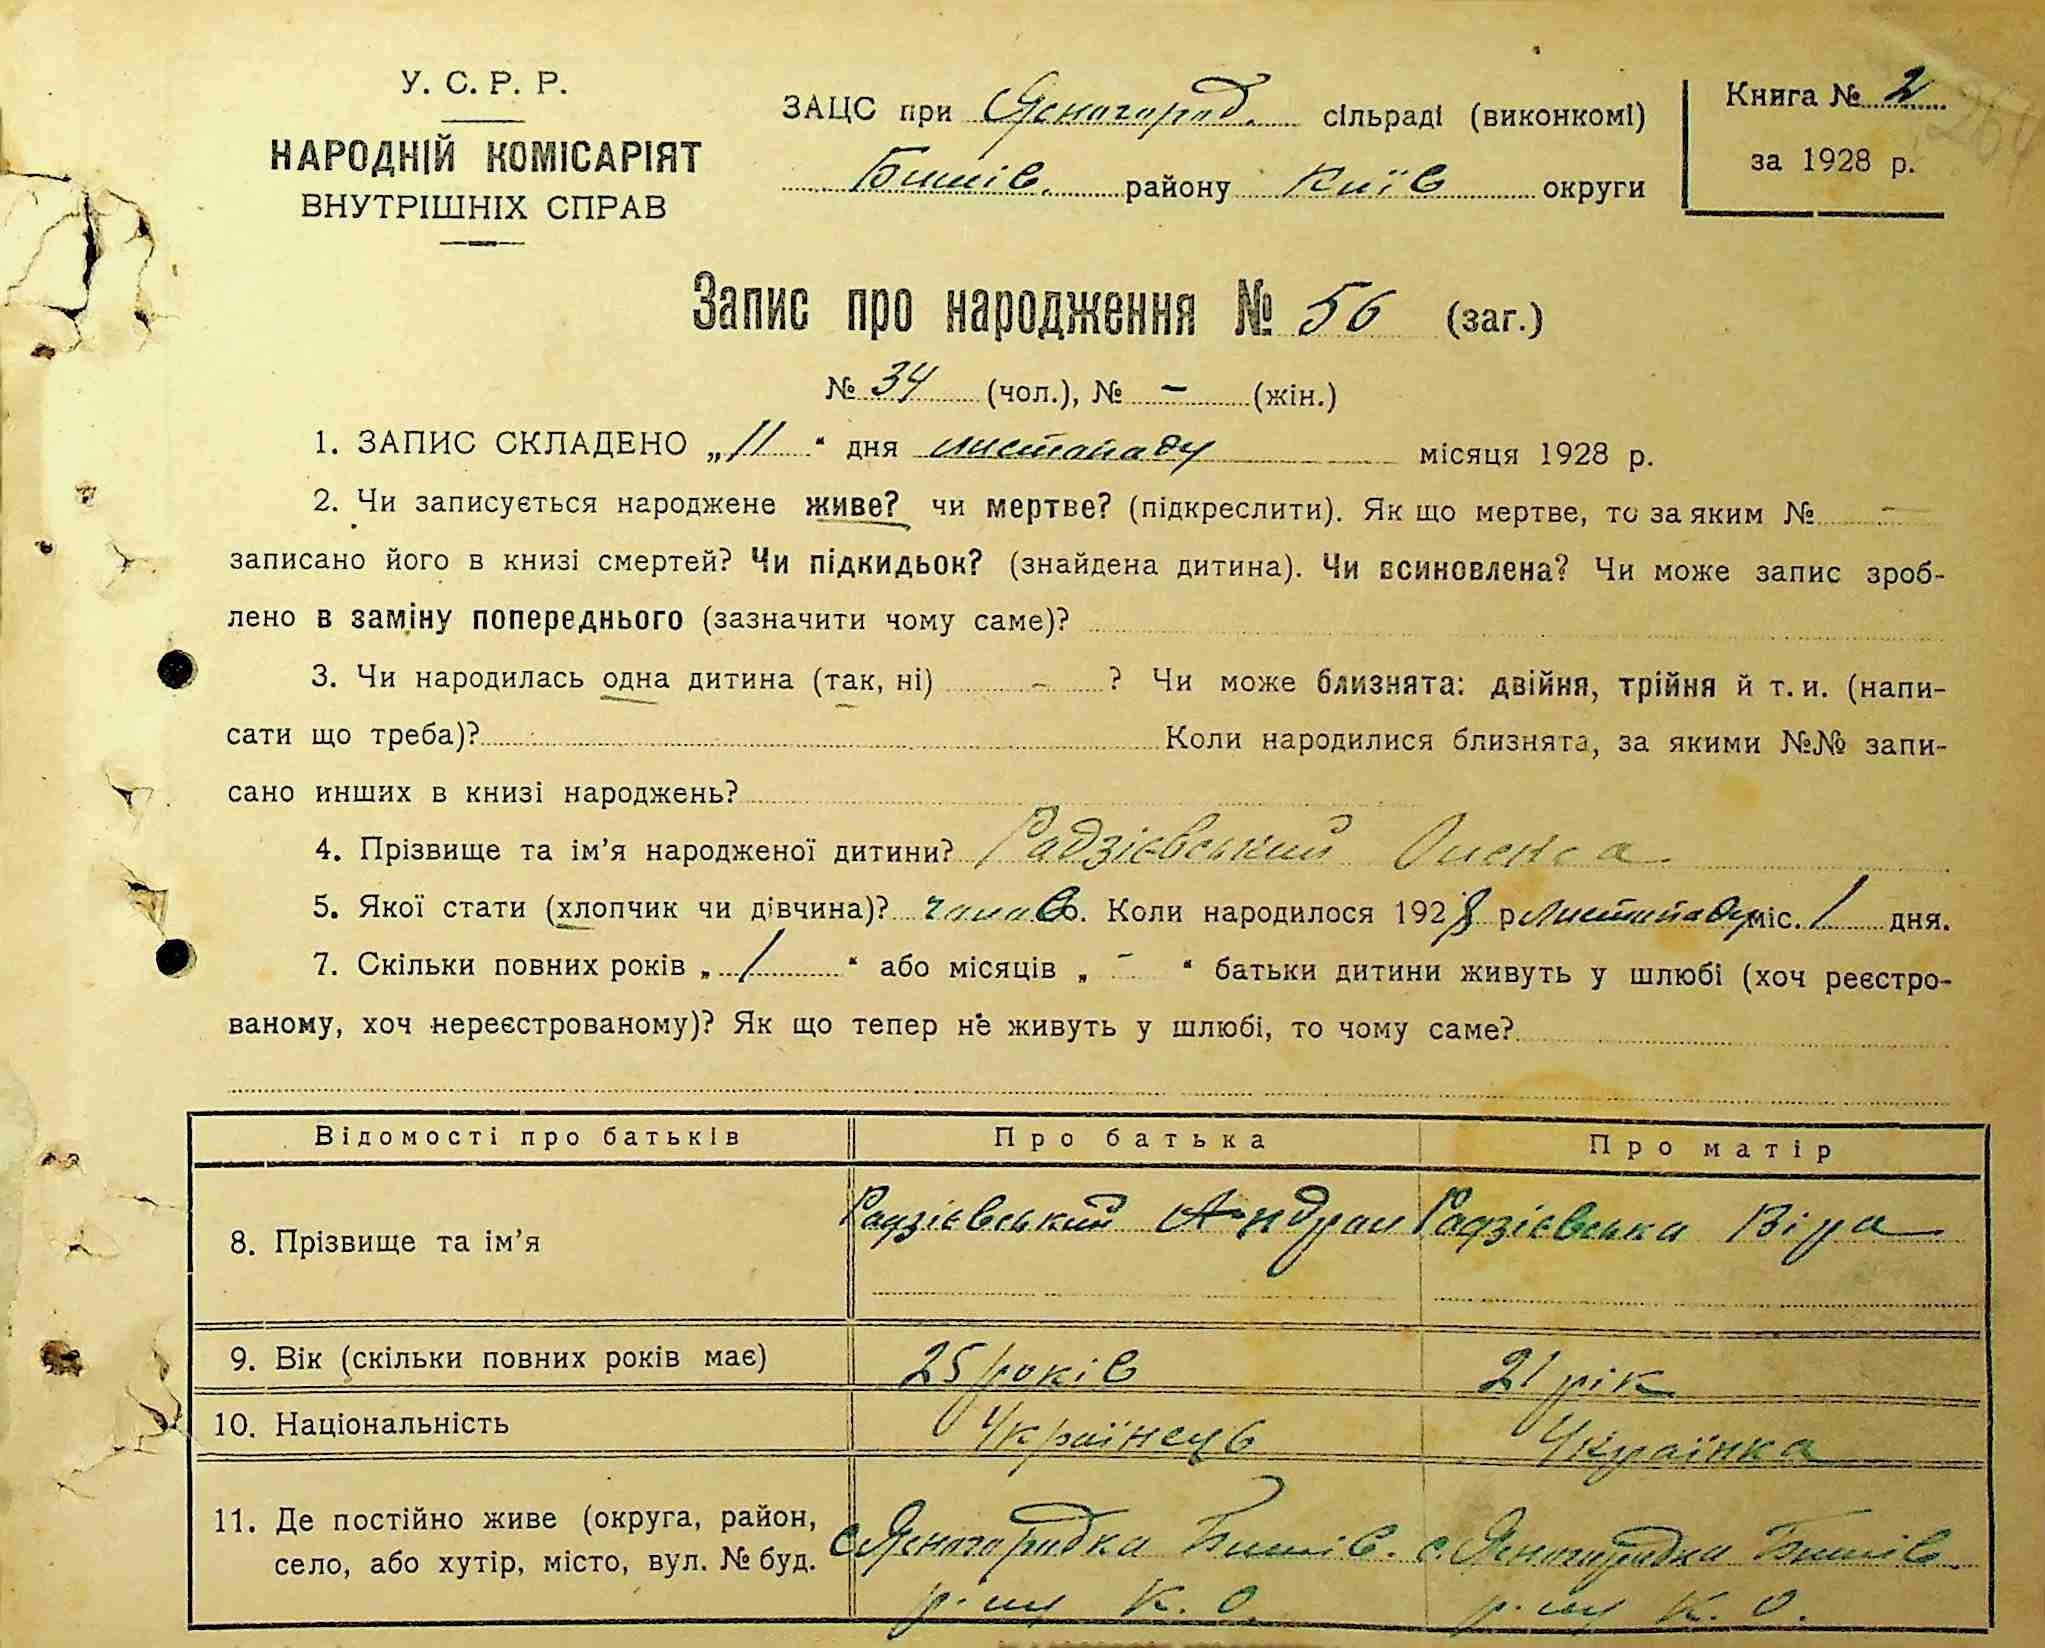 У. С. Р. Р.
НАРОДНІЙ КОМІСАРІЯТ
ВНУТРІШНІХ СПРАВ
ЗАЦС при Ясногород. сільраді (виконкомі)
Бишів. району Київ округи
Книга № 2
за 1928 р.
264
Запис про народження № 56 (заг.)
№ 34 (чол.), № – (жін.)
1. ЗАПИС СКЛАДЕНО „11“ дня листопаду місяця 1928 р.
2. Чи записується народжене живе? чи мертве? (підкреслити). Як що мертве, то за яким № –
записано його в книзі смертей? Чи підкидьок? (знайдена дитина). Чи всиновлена? Чи може запис зроб-
лено в заміну попереднього (зазначити чому саме)?
3. Чи народилась одна дитина (так, ні) – ? Чи може близнята: двійня, трійня й т. и. (напи-
сати що треба)? Коли народилися близнята, за якими №№ запи-
сано инших в книзі народжень?
4. Прізвище та ім’я народженої дитини? Радзієвський Олекса
5. Якої стати (хлопчик чи дівчина)? чолов. Коли народилося 1928 р листопаду міс. 1 дня.
7. Скільки повних років „ 1 “ або місяців „ – “ батьки дитини живуть у шлюбі (хоч реєстро-
ваному, хоч нереєстрованому)? Як що тепер не живуть у шлюбі, то чому саме?
Відомості про батьків Про батька Про матір
8. Прізвище та ім’я Радзієвський Радзієвська Віра
9. Вік (скільки повних років має) 25 років 21 рік
10. Національність Українець Українка
11. Де постійно живе (округа, район, с. Ясногородка Бишів. с. Ясногородка Бишів
село, або хутір, місто, вул. № буд. р-ну К. О. р-ну К. О.